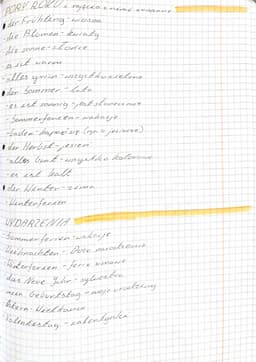 PORY ROKU
der Frühling - wiosna
die Blumen - kwiaty
die sonne - słońce
es ist warm
alles grün - wszystko zielone
der Sommer - lato
es ist sonnig - jest słonecznie
Sommerferien - wakacje
baden - kąpać się (np. w jeziorze)
der Herbst - jesień
alles bunt - wszystko kolorowe
es ist kalt
der Winter - zima
Winterferien
WYDARZENIA
Sommerferien - wakacje
Weihnachten - Boże narodzenie
Winterferien - ferie zimowe
das Neue Jahr - sylwestra
mein Geburtstag - moje urodziny
Ostern - Wielkanoc
Valentinstag - walentynki